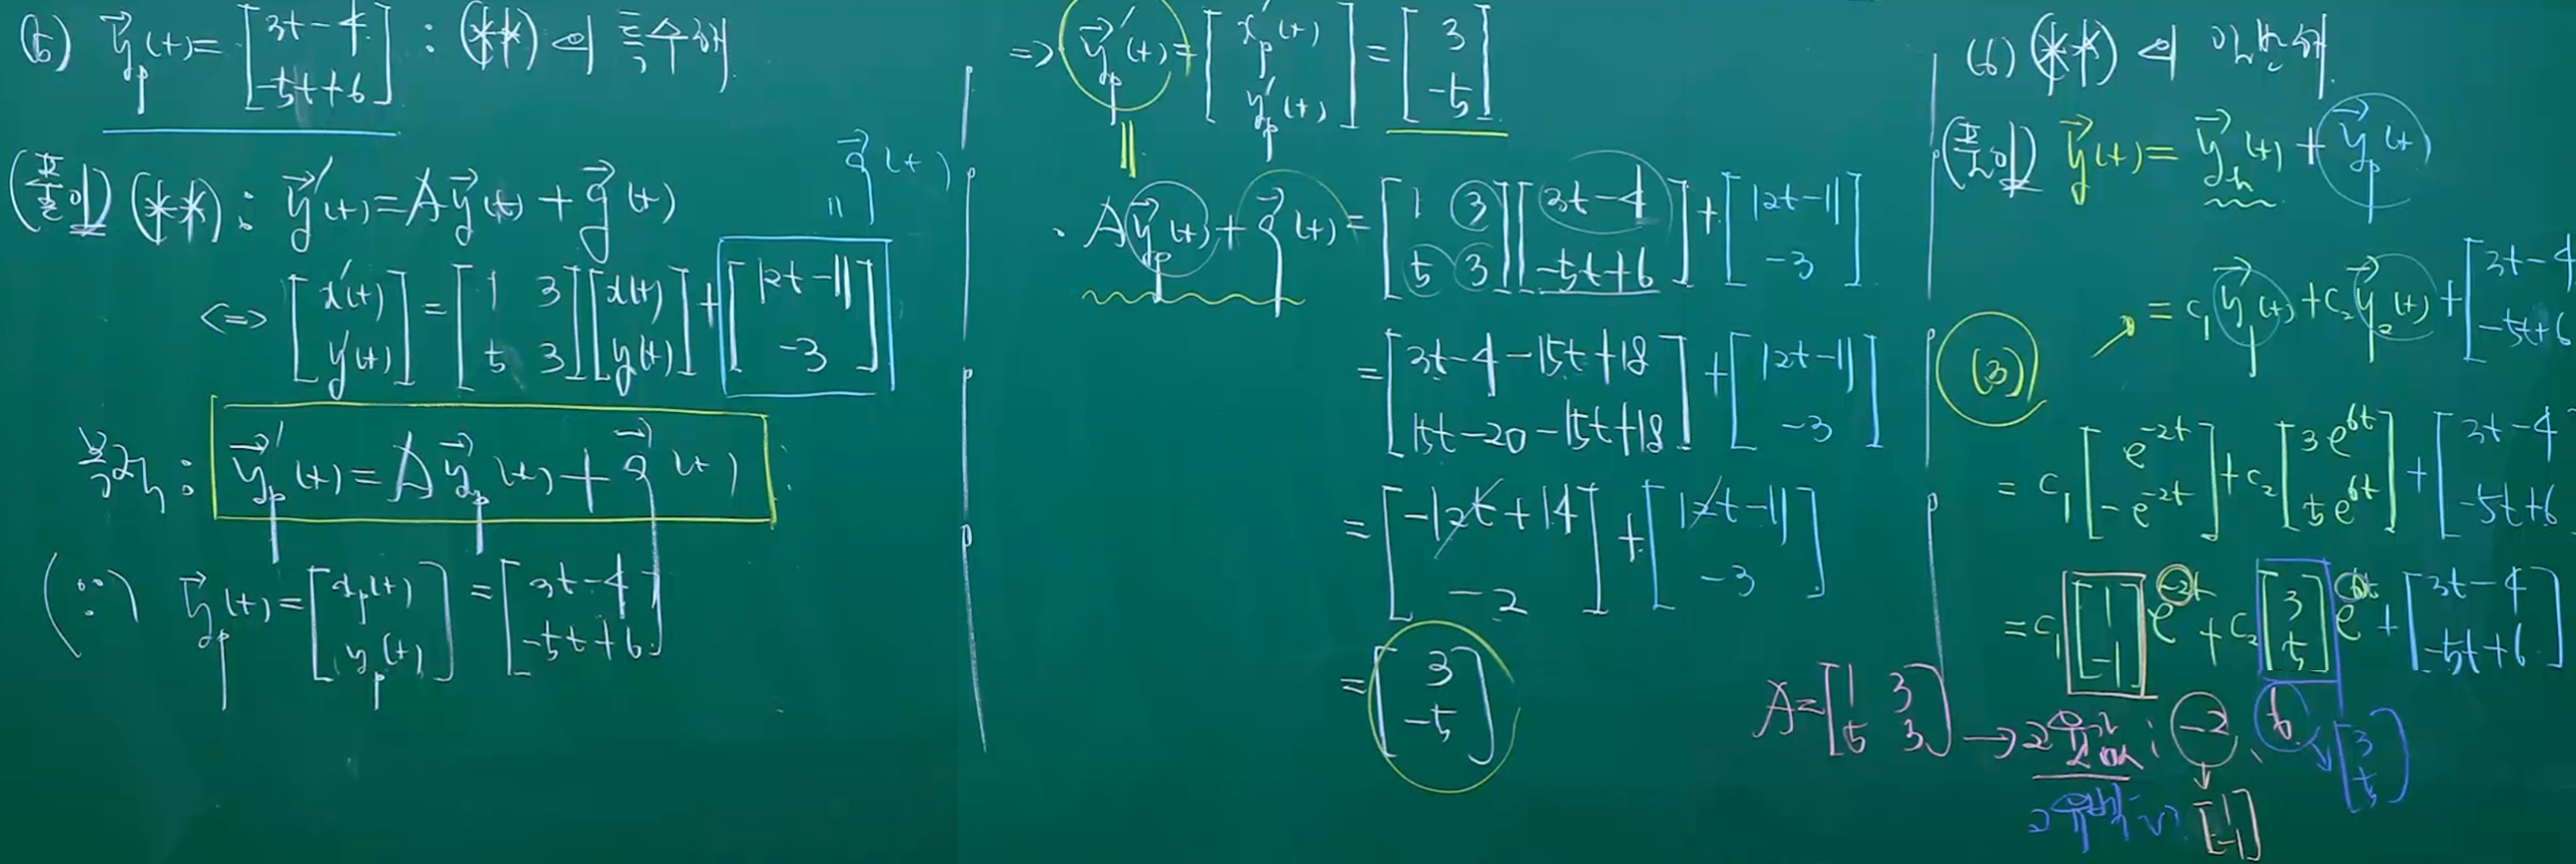 (5) y⃗p(t) = [3t-4; -5t+6] : (**)의 특수해
(풀이) (**) : y⃗′(t) = Ay⃗(t) + g⃗(t)
g⃗(t)
=
<=> [x′(t); y′(t)] = [1 3; 5 3][x(t); y(t)] + [12t-11; -3]
보임 : y⃗p′(t) = Ay⃗p(t) + g⃗(t)
(∵) y⃗p(t) = [xp(t); yp(t)] = [3t-4; -5t+6]
=> y⃗p′(t) = [xp′(t); yp′(t)] = [3; -5]
· Ay⃗p(t) + g⃗(t) = [1 3; 5 3][3t-4; -5t+6] + [12t-11; -3]
= [3t-4-15t+18; 15t-20-15t+18] + [12t-11; -3]
= [-12t+14; -2] + [12t-11; -3]
= [3; -5]
(6) (**)의 일반해
(풀이) y⃗(t) = y⃗h(t) + y⃗p(t)
(3) = c₁y⃗₁(t) + c₂y⃗₂(t) + [3t-4; -5t+6]
= c₁[e^-2t; -e^-2t] + c₂[3e^6t; 5e^6t] + [3t-4; -5t+6]
= c₁[1; -1]e^-2t + c₂[3; 5]e^6t + [3t-4; -5t+6]
A = [1 3; 5 3] → 고윳값 : -2, 6
고유벡터: [1; -1] [3; 5]